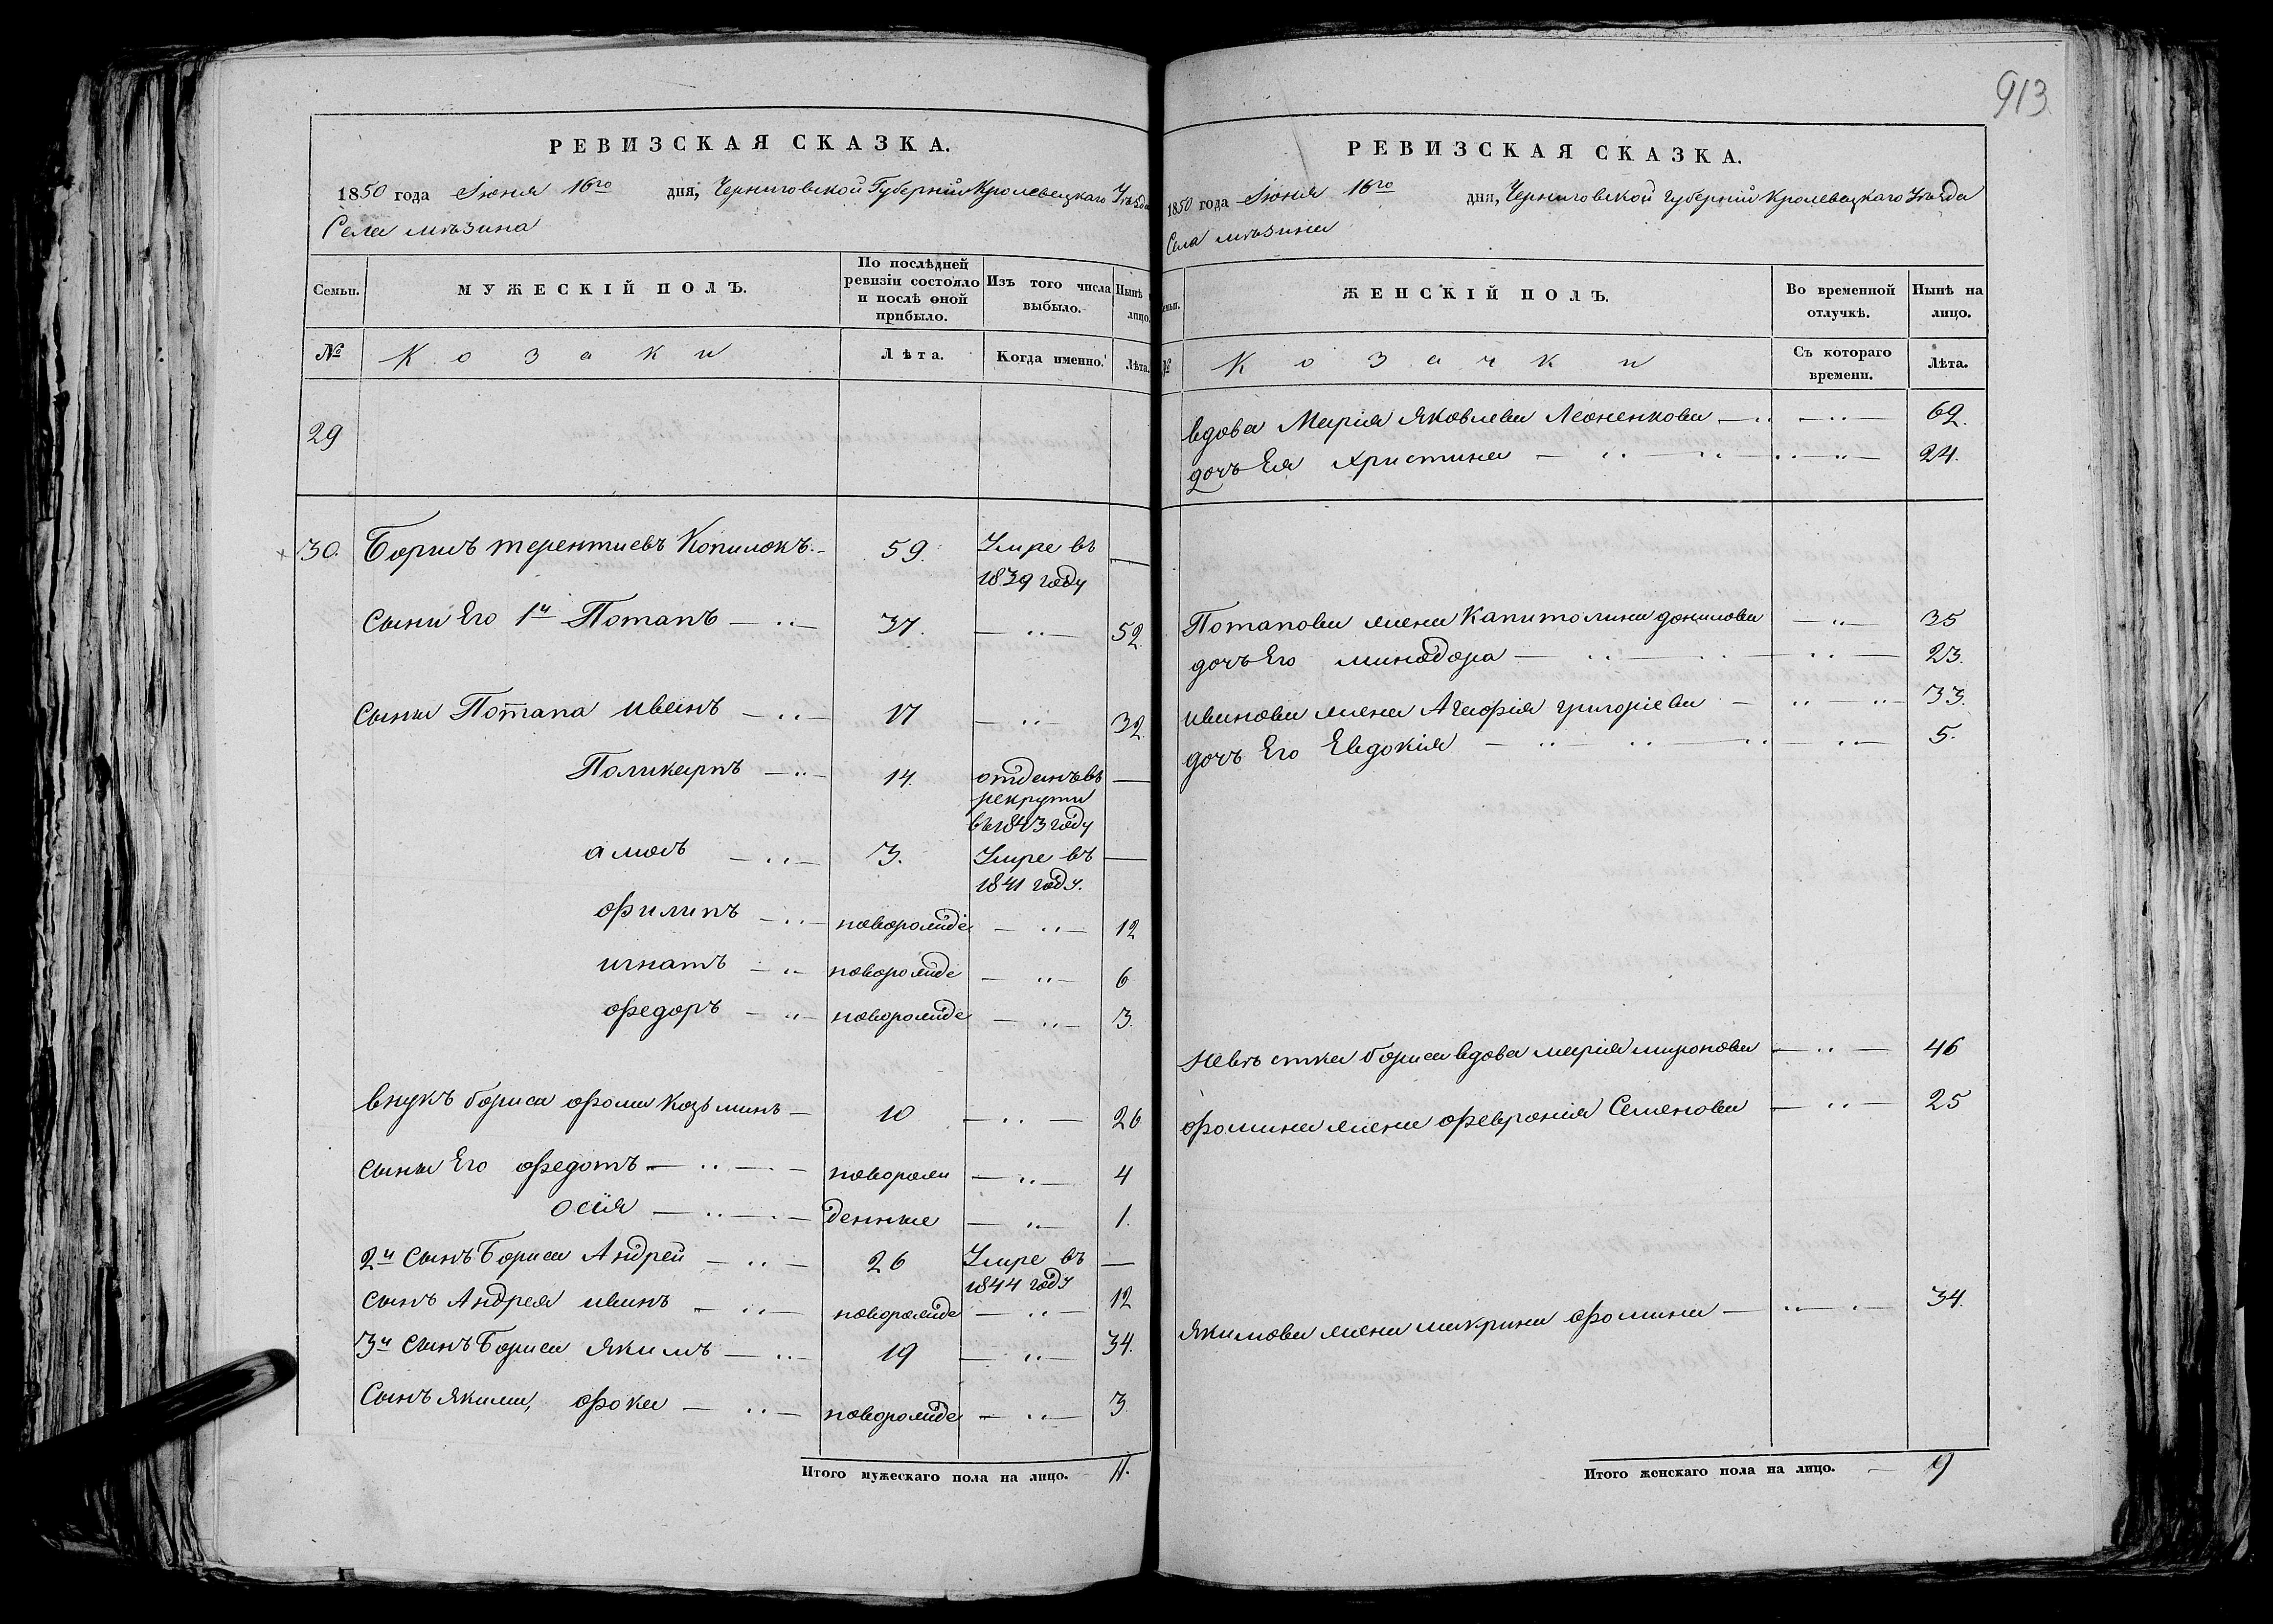 913
РЕВИЗСКАЯ СКАЗКА.
1850 года Іюня 16го дня, Черниговской Губерніи Кролевецкаго Уѣзда
Села мѣзина
Семьи.
МУЖЕСКІЙ ПОЛЪ.
По послѣдней
ревизіи состояло
и послѣ оной
прибыло.
Изъ того числа
выбыло.
Нынѣ
лицо.
№
Козаки
Лѣта.
Когда именно.
Лѣта.
29
30. Борисъ терентиевъ Копилокъ 59. Умре въ —
1839 году
Сыни Его 1й Потапъ — 〃 — 37. — 〃 — 52.
Сыны Потапа иванъ — 〃 — 17 — 〃 — 32.
Поликарпъ — 〃 — 14. отданъ въ —
рекруты
въ 1843 году
амосъ — 〃 — 3. Умре въ —
1841 году.
филипъ — 〃 — новорожде — 〃 — 12
игнатъ — 〃 новорожде — 〃 — 6
федоръ — 〃 — новорожде — 〃 — 3.
внукъ бориса фома Козьминъ — 10 — 〃 — 26
сыны Его федотъ — 〃 — новорож — 〃 — 4
осія — 〃 — денные — 〃 — 1.
2й сынъ Бориса Андрей — 〃 — 26 Умре въ —
1844 году
сынъ Андрея иванъ — 〃 — новорожде — 〃 — 12
3й сынъ Бориса якимъ — 〃 — 19 — 〃 — 34.
Сынъ якима, фока — 〃 — новорожде — 〃 — 3
Итого мужескаго пола на лицо. 11.
РЕВИЗСКАЯ СКАЗКА.
1850 года Іюня 16го дня, Черниговской губерніи Кролевецкаго Уѣзда
Села мѣзина
ЖЕНСКІЙ ПОЛЪ.
Во временной
отлучкѣ.
Нынѣ на
лицо.
№
Козачки
Съ котораго
времени.
Лѣта.
вдова Марія Яковлева Леоненкова — 〃 — 〃 — 62.
дочь Ея Христина — 〃 〃 〃 — 24.
Потапова жена Капитолина данилова — 〃 — 35
дочь Его минодора — 〃 — 〃 — 23.
иванова жена Агафія григоріева — 〃 — 〃 33.
дочь Его Евдокія — 〃 〃 — 〃 — 5.
Невѣстка бориса вдова марія миронова — 〃 — 46
фомина жена феврония Семенова — 〃 — 25
якимова жена макрина фомина — 〃 — 34.
Итого женскаго пола на лицо. — 9